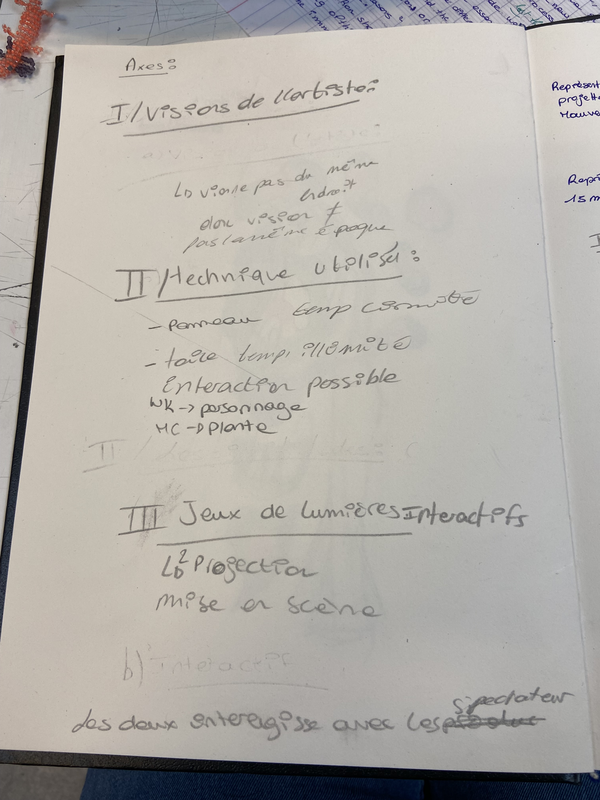 Axes:
I/Visions de l'artiste:
↳ vienne pas du même
endroit
donc vision ≠
pas la même époque
II/technique utilisé:
- panneau temp limité
- toile temp illimité
Interaction possible
WK -> personnage
MC -> Plante
II
III Jeux de lumières Interactifs
↳ 2 Projection
mise en scène
b) Interactif
spectateur
les deux interagisse avec les
Représent
projetté
Mouve
Repr
15 m